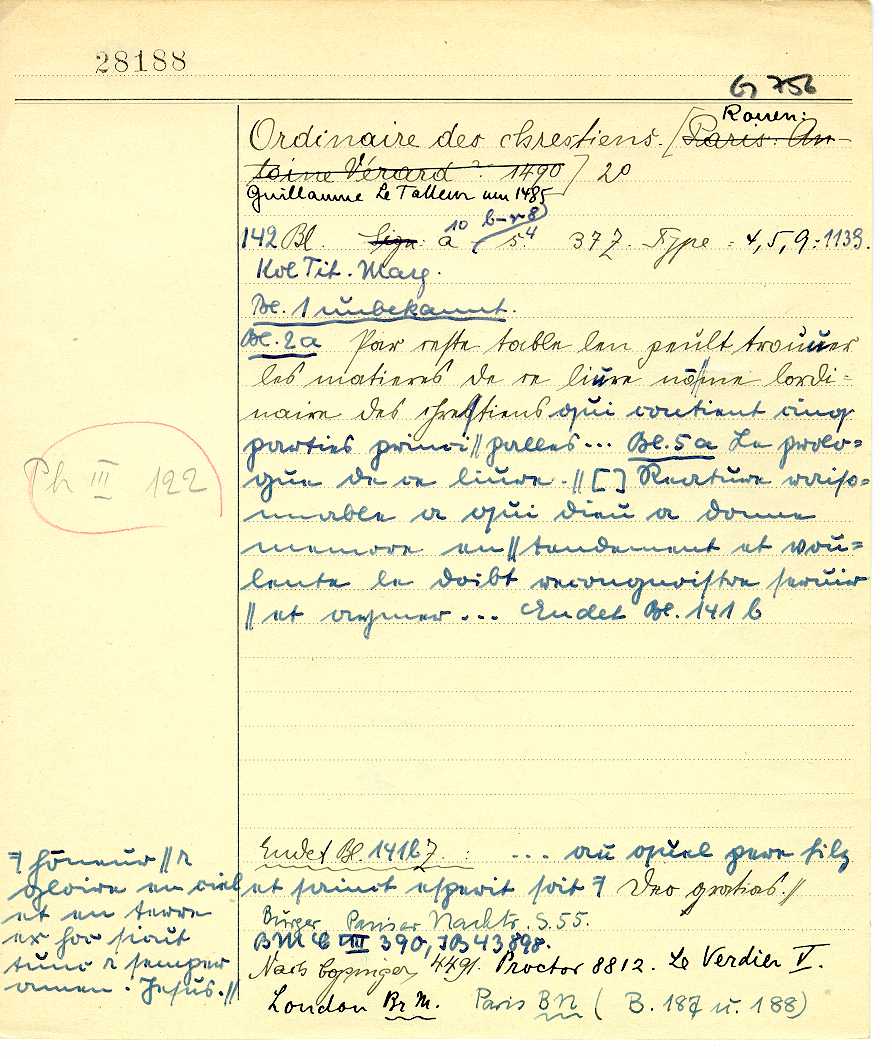 28188
G 756
Rouen:
Ordinaire des chrestiens. [Paris: An-
toine Vérard ? 1490] 2°
Guillaume Le Talleur um 1485
142 Bl. Sign: a¹⁰ b–r⁸ s⁴. 37 Z. Type: 4, 5, 9: 113G.
Kol Tit. Marg.
Bl. 1 unbekannt.
Bl. 2a Par ceste table len peult trouuer
les matieres de ce liure nōme lordi-
naire des chre//stiens qui contient cinq
parties princi//palles... Bl. 5a Le prolo=
gue de ce liure. // [ ] Reature raiso=
nnable a qui dieu a donne
memore en//tendement et vou=
lente le doibt recongnoistre seruir
// et aymer... Endet Bl. 141 b
Ph III 122
Endet Bl. 141b Z. : ... au quel pere filz
et sainct esperit soit ⁊ Deo gratias. //
⁊ hōneur // ⁊
gloire en ciel
et en terre
ex hoc sicut
tunc ⁊ semper
amen. Jesus. //
Burger Panzer Nachtr. S. 55.
BMC VIII 390, IB 43898.
Nach Copinger 4491. Proctor 8812. Le Verdier V.
London Br M. Paris BN ( B. 187 u. 188)